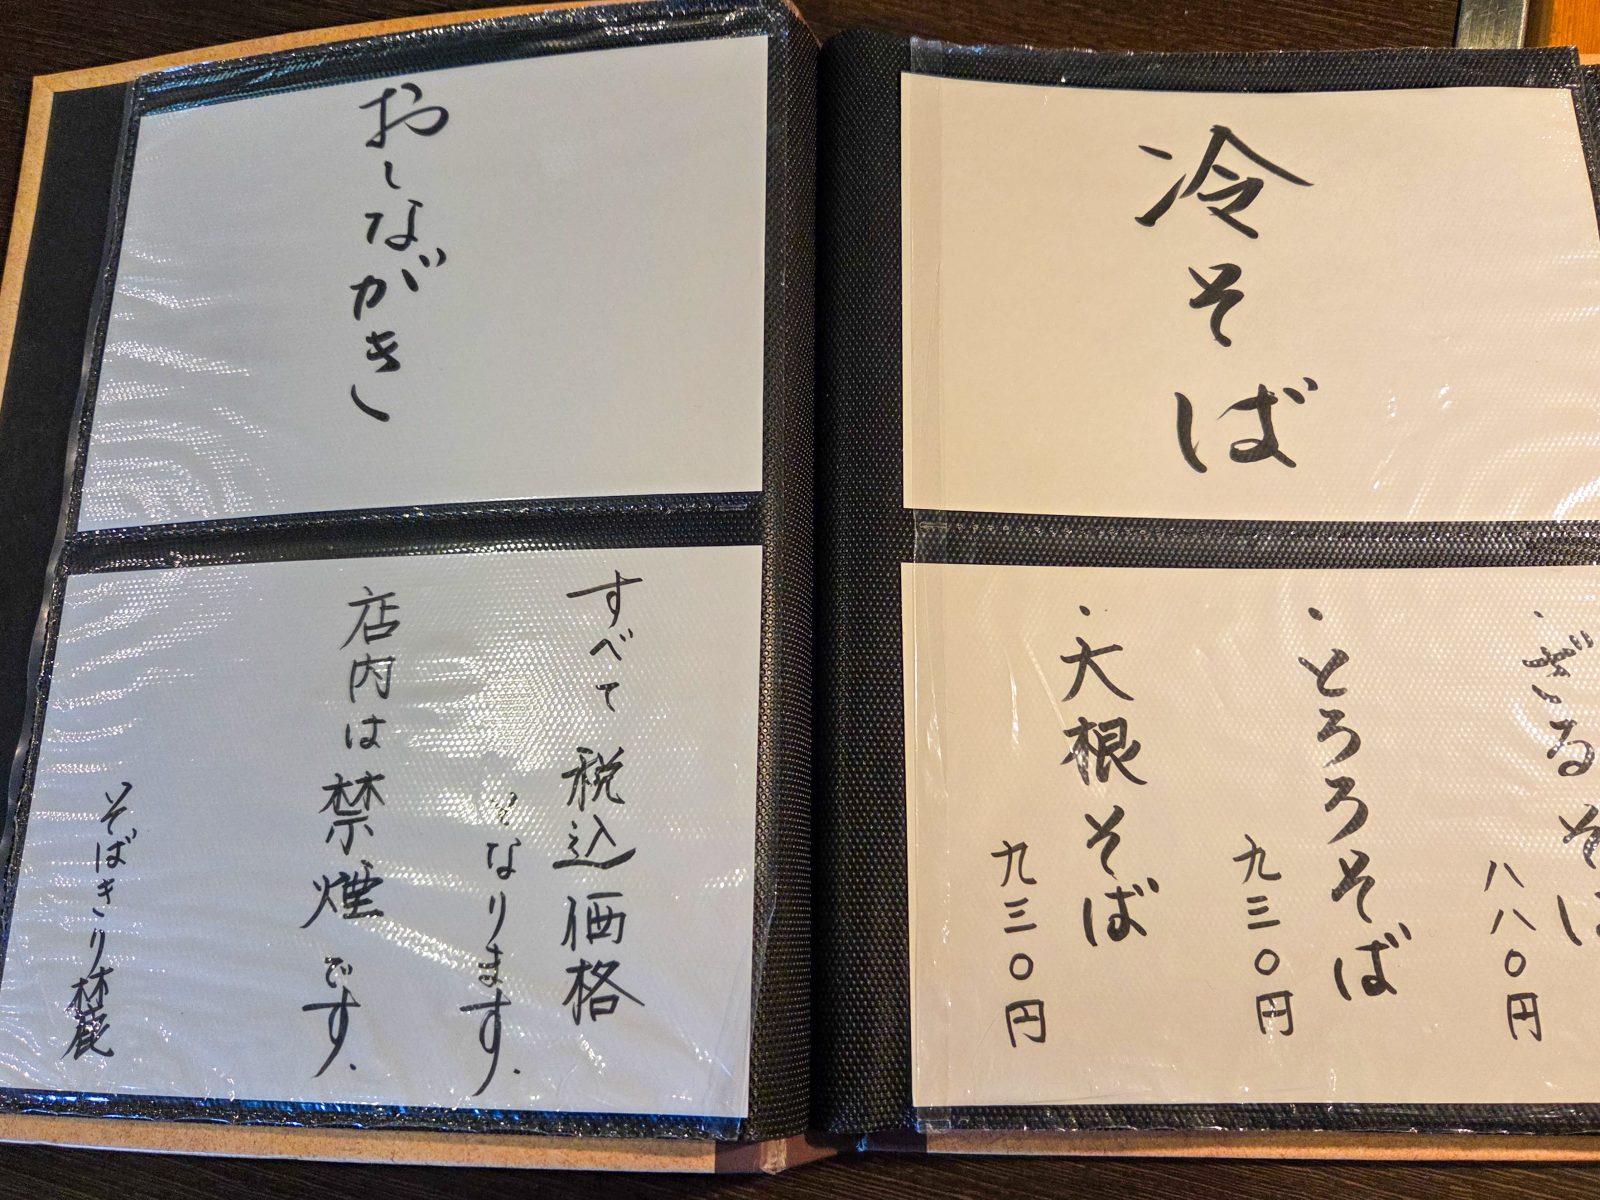 おしながき
すべて税込価格
になります.
店内は禁煙です.
そばきり麓
冷そば
・ざるそば
八八〇円
・とろろそば
九三〇円
・大根そば
九三〇円